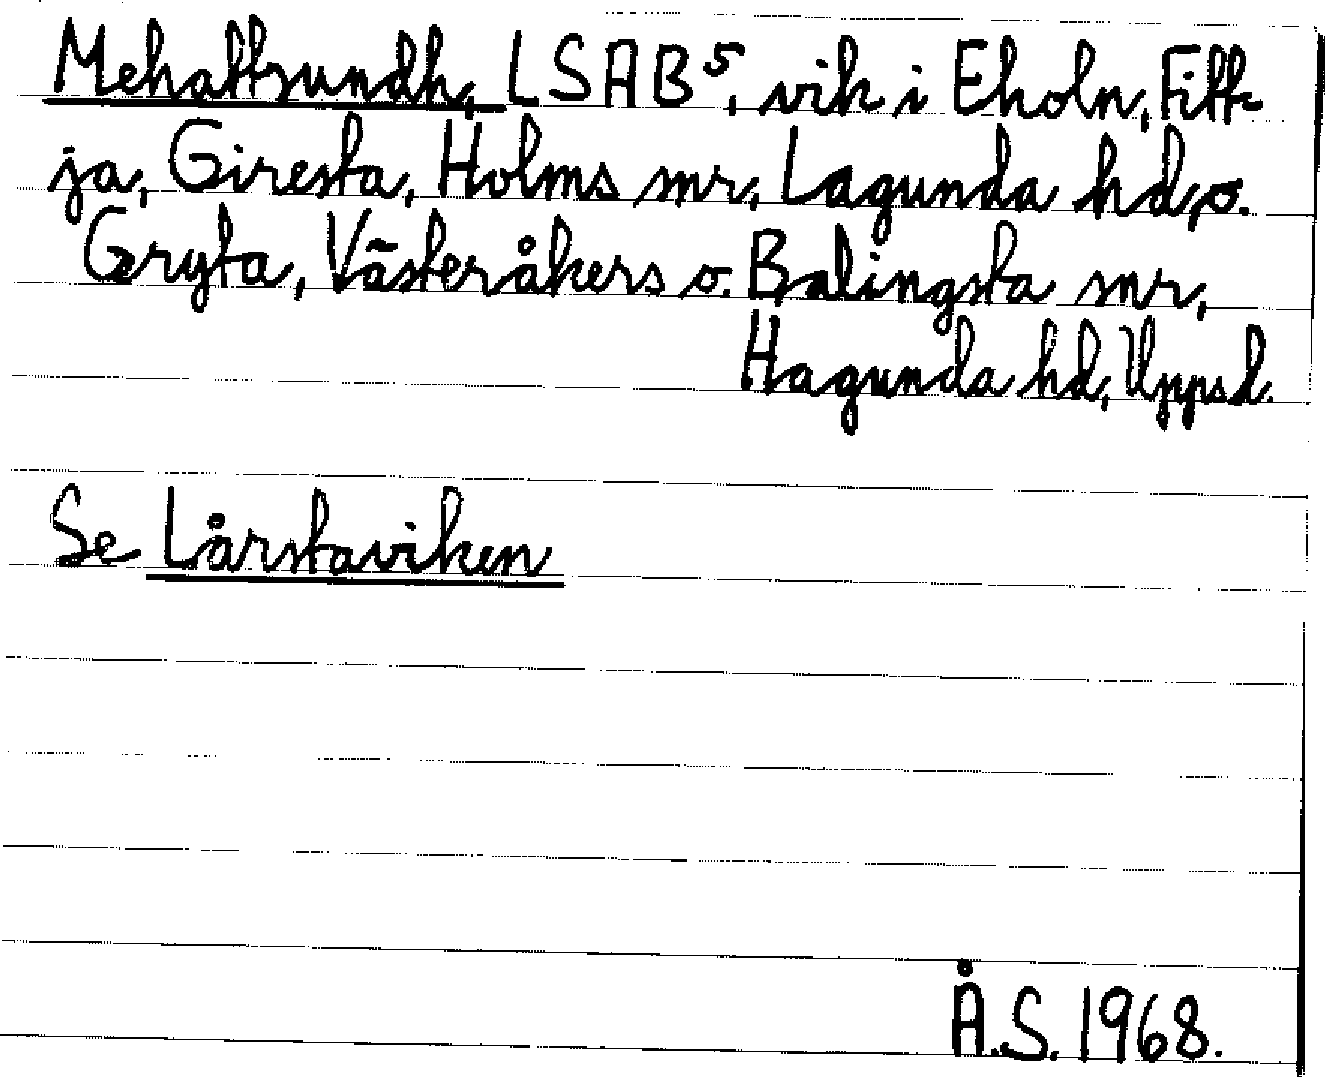 Mehattsundh, LSAB5, vik i Eholn, Fitt-
ja, Giresta, Holms snr, Lagunda hd, o.
Gryta, Västeråkers o. Balingsta snr,
Hagunda hd, Uppsl.
Se Lårstaviken
Å.S. 1968.